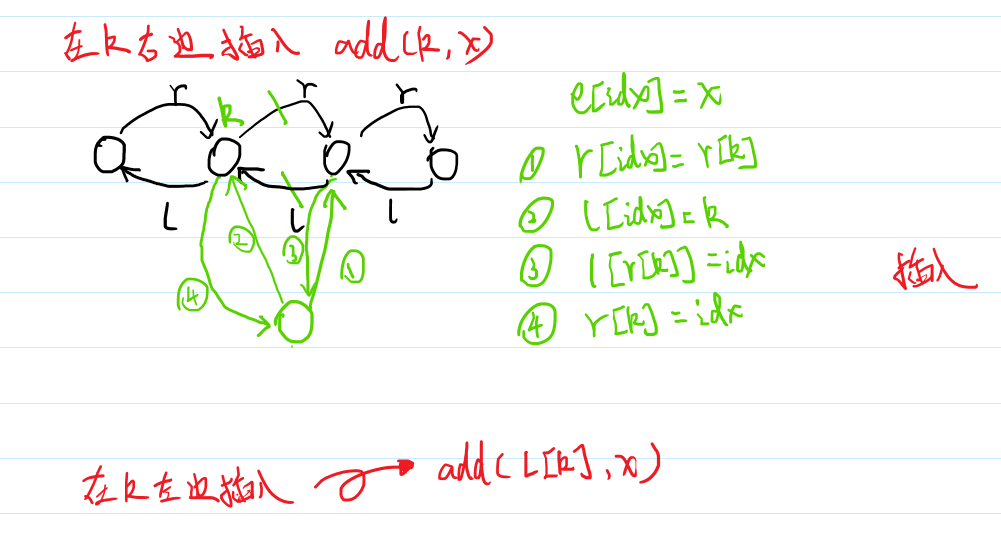 左k右边插入 add(k,x)
r r r
k
l l l
② ③ ①
④
e[idx]=x
① r[idx]=r[k]
② l[idx]=k
③ l[r[k]]=idx
④ r[k]=idx
插入
在k左边插入 add(L[k],x)